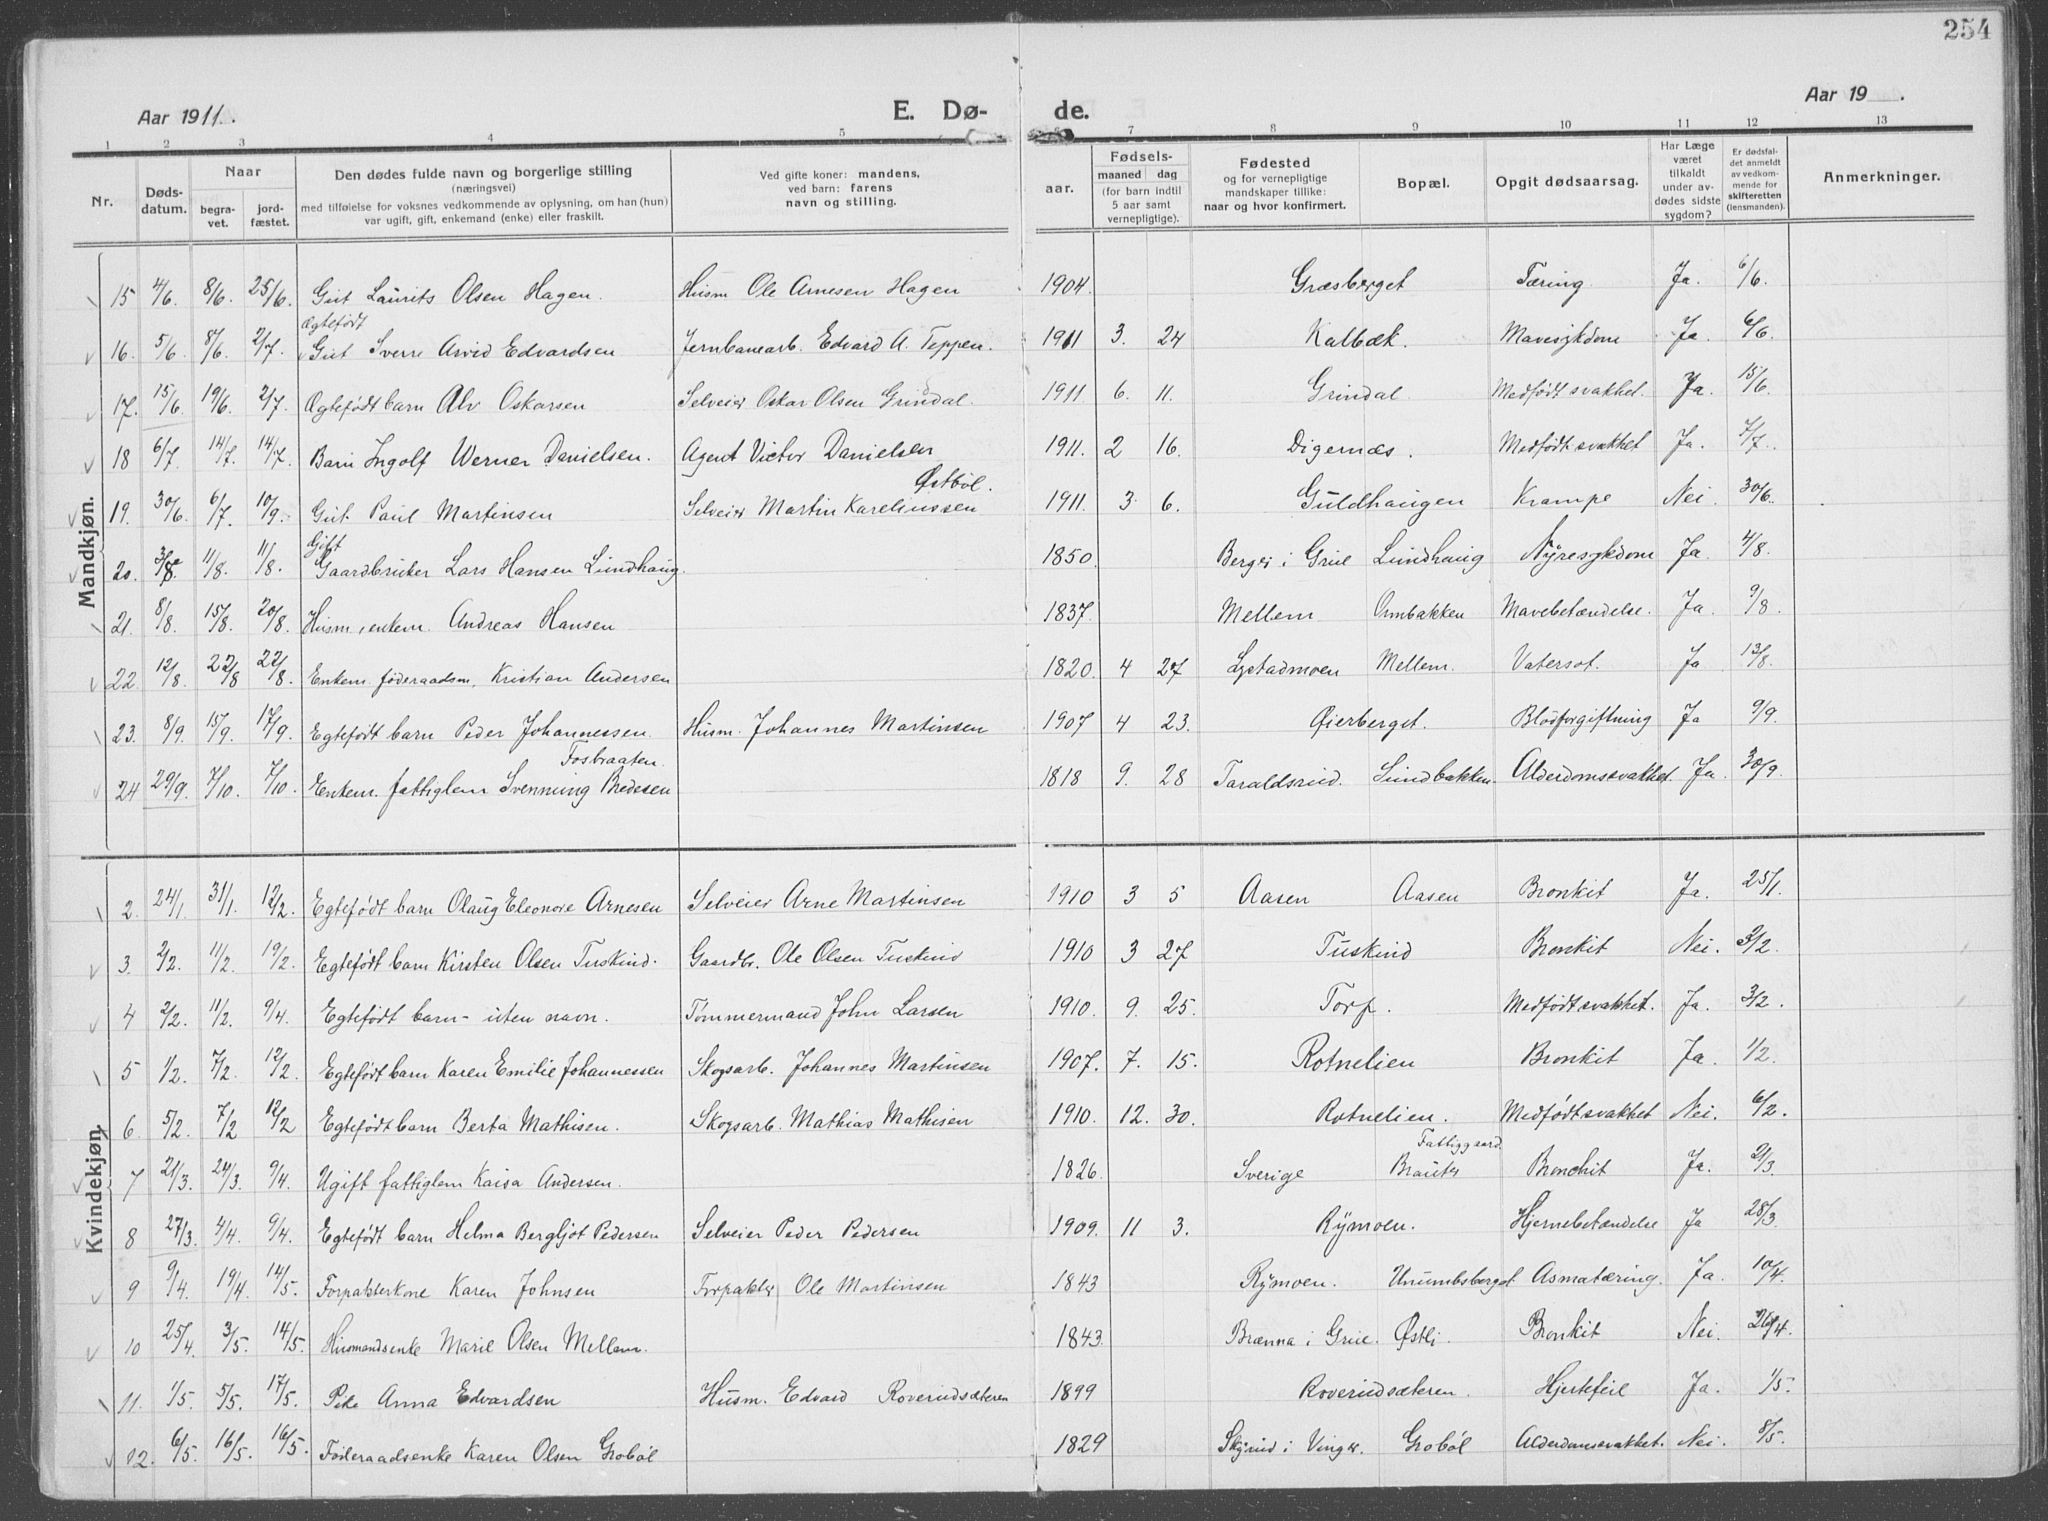 254
Aar 1911.
E. Dø-
de.
Aar 19 .
1 2 3 4 5 7 8 9 10 11 12 13
Nr.
Døds-
datum.
Naar
begra-
vet.
jord-
fæstet.
Den dødes fulde navn og borgerlige stilling
(næringsvei)
med tilføielse for voksnes vedkommende av oplysning, om han (hun)
var ugift, gift, enkemand (enke) eller fraskilt.
Ved gifte koner: mandens,
ved barn: farens
navn og stilling.
aar.
Fødsels-
maaned dag
(for barn indtil
5 aar samt
vernepligtige).
Fødested
og for vernepligtige
mandskaper tillike:
naar og hvor konfirmert.
Bopæl.
Opgit dødsaarsag.
Har Læge
været
tilkaldt
under av-
dødes sidste
sygdom?
Er dødsfal-
det anmeldt
av vedkom-
mende for
skifteretten
(lensmanden).
Anmerkninger.
Mandkjøn.
15 4/6. 8/6. 25/6. Gut Laurits Olsen Hagen. Husm Ole Arnesen Hagen 1904. Græsberget Tæring Ja. 6/6.
Ægtefødt
16. 5/6. 8/6. 2/7. Gut Sverre Arvid Edvardsen Jernbanearb. Edvard A. Teppen. 1911 3. 24 Kalbæk. Mavesykdom Ja. 6/6.
17. 15/6. 19/6. 2/7. Ægtefødt barn Alv Oskarsen Selveier Oskar Olsen Grindal. 1911. 6. 11. Grindal Medfødt svakhet. Ja. 15/6.
18 6/7. 14/7. 14/7. Barn Ingolf Werner Danielsen. Agent Victor Danielsen 1911. 2 16. Digernæs. Medfødt svakhet Ja. 7/7.
Østbøl.
19. 30/6. 6/7. 10/9. Gut Paul Martinsen Selveier Martin Kareliussen 1911. 3. 6. Guldhaugen Krampe Nei. 30/6.
Gift
20. 3/8. 11/8. 11/8. Gaardbruker Lars Hansen Lundhaug. 1850. Berger i Grue Lundhaug Nyresykdom Ja. 4/8.
21. 8/8. 15/8. 20/8. Husm, enkem. Andreas Hansen 1837. Mellem Ombakken Mavebetændelse. Ja. 9/8.
22. 12/8. 22/8 22/8. Enkem. føderaadsm, Kristian Andersen 1820. 4 27 Lystadmoen Mellem. Vatersot. Ja 13/8.
23. 8/9. 15/9. 17/9. Egtefødt barn Peder Johannessen. Husm. Johannes Martinsen 1907 4 23. Øierberget. Blodforgiftning Ja 9/9.
Fosbraaten.
24 29/9. 7/10. 7/10. Enkem. fattiglem Svenning Bredesen 1818 9. 28 Taraldsrud. Lundbakken Alderdomssvakhet Ja. 30/9.
Kvindekjøn.
2. 24/1. 31/1. 12/2. Egtefødt barn Olaug Eleonore Arnesen Selveier Arne Martinsen 1910 3 5 Aasen Aasen Bronkit Ja. 25/1.
3. 2/2. 11/2. 19/2. Egtefødt barn Kirsten Olsen Tuskind. Gaardbr. Ole Olsen Tuskind 1910 3 27 Tuskind Bronkit Nei. 3/2.
4 2/2. 11/2. 9/4. Egtefødt barn - uten navn. Tømmermand John Larsen 1910. 9. 25. Torp. Medfødt svakhet. Ja. 3/2.
5 1/2. 7/2. 12/2. Egtefødt barn Karen Emilie Johannessen Skogsarb. Johannes Martinsen 1907. 7. 15. Rotnelien Bronkit Ja. 1/2.
6. 5/2. 7/2 12/2 Egtefødt barn Berta Mathisen. Skogsarb. Mathias Mathisen 1910. 12. 30. Rotnelien. Medfødt svakhet Nei. 6/2.
Fattiggaard.
7 21/3. 24/3. 9/4. Ugift fattiglem Kaisa Andersen. 1826. Sverige Brauter Bronchit Ja. 21/3.
8 27/3. 4/4. 9/4. Egtefødt barn Helma Bergljot Pedersen Selveier Peder Pedersen 1909. 11 3. Rymoen. Hjernebetændelse Ja 28/3.
9 9/4. 19/4. 14/5. Forpakterkone Karen Johnsen Forpakter Ole Martinsen 1843 Rymoen. Unumbsberget. Asmatæring. Ja. 10/4.
10 25/4. 3/5. 14/5. Husmandsenke Marie Olsen Mellem. 1843. Brænna i Grue. Østli Bronkit Nei. 26/4.
11. 1/5. 5/5. 17/5. Pike Anna Edvardsen Husm. Edvard Roverudsæteren 1899 Roverudsæteren. Hjertefeil Ja. 1/5.
12. 6/5. 16/5. 16/5. Føderaadsenke Karen Olsen Grobøl 1829 Skyrud i Vinger. Grobøl Alderdomssvakhet. Nei. 8/5.